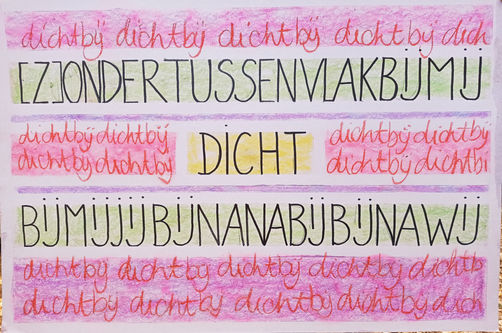 dichtbij dichtbij dichtbij dichtbij dich
[Z]ONDERTUSSENVLAKBIJMIJ
dichtbij dichtbij dichtbij dichtbij
dichtbij dichtbij DICHT dichtbij dichtbi
BIJMIJJIJBIJNANABIJBIJNAWIJ
dichtbij dichtbij dichtbij dichtbij dichtb
dichtbij dichtbij dichtbij dichtbij dich